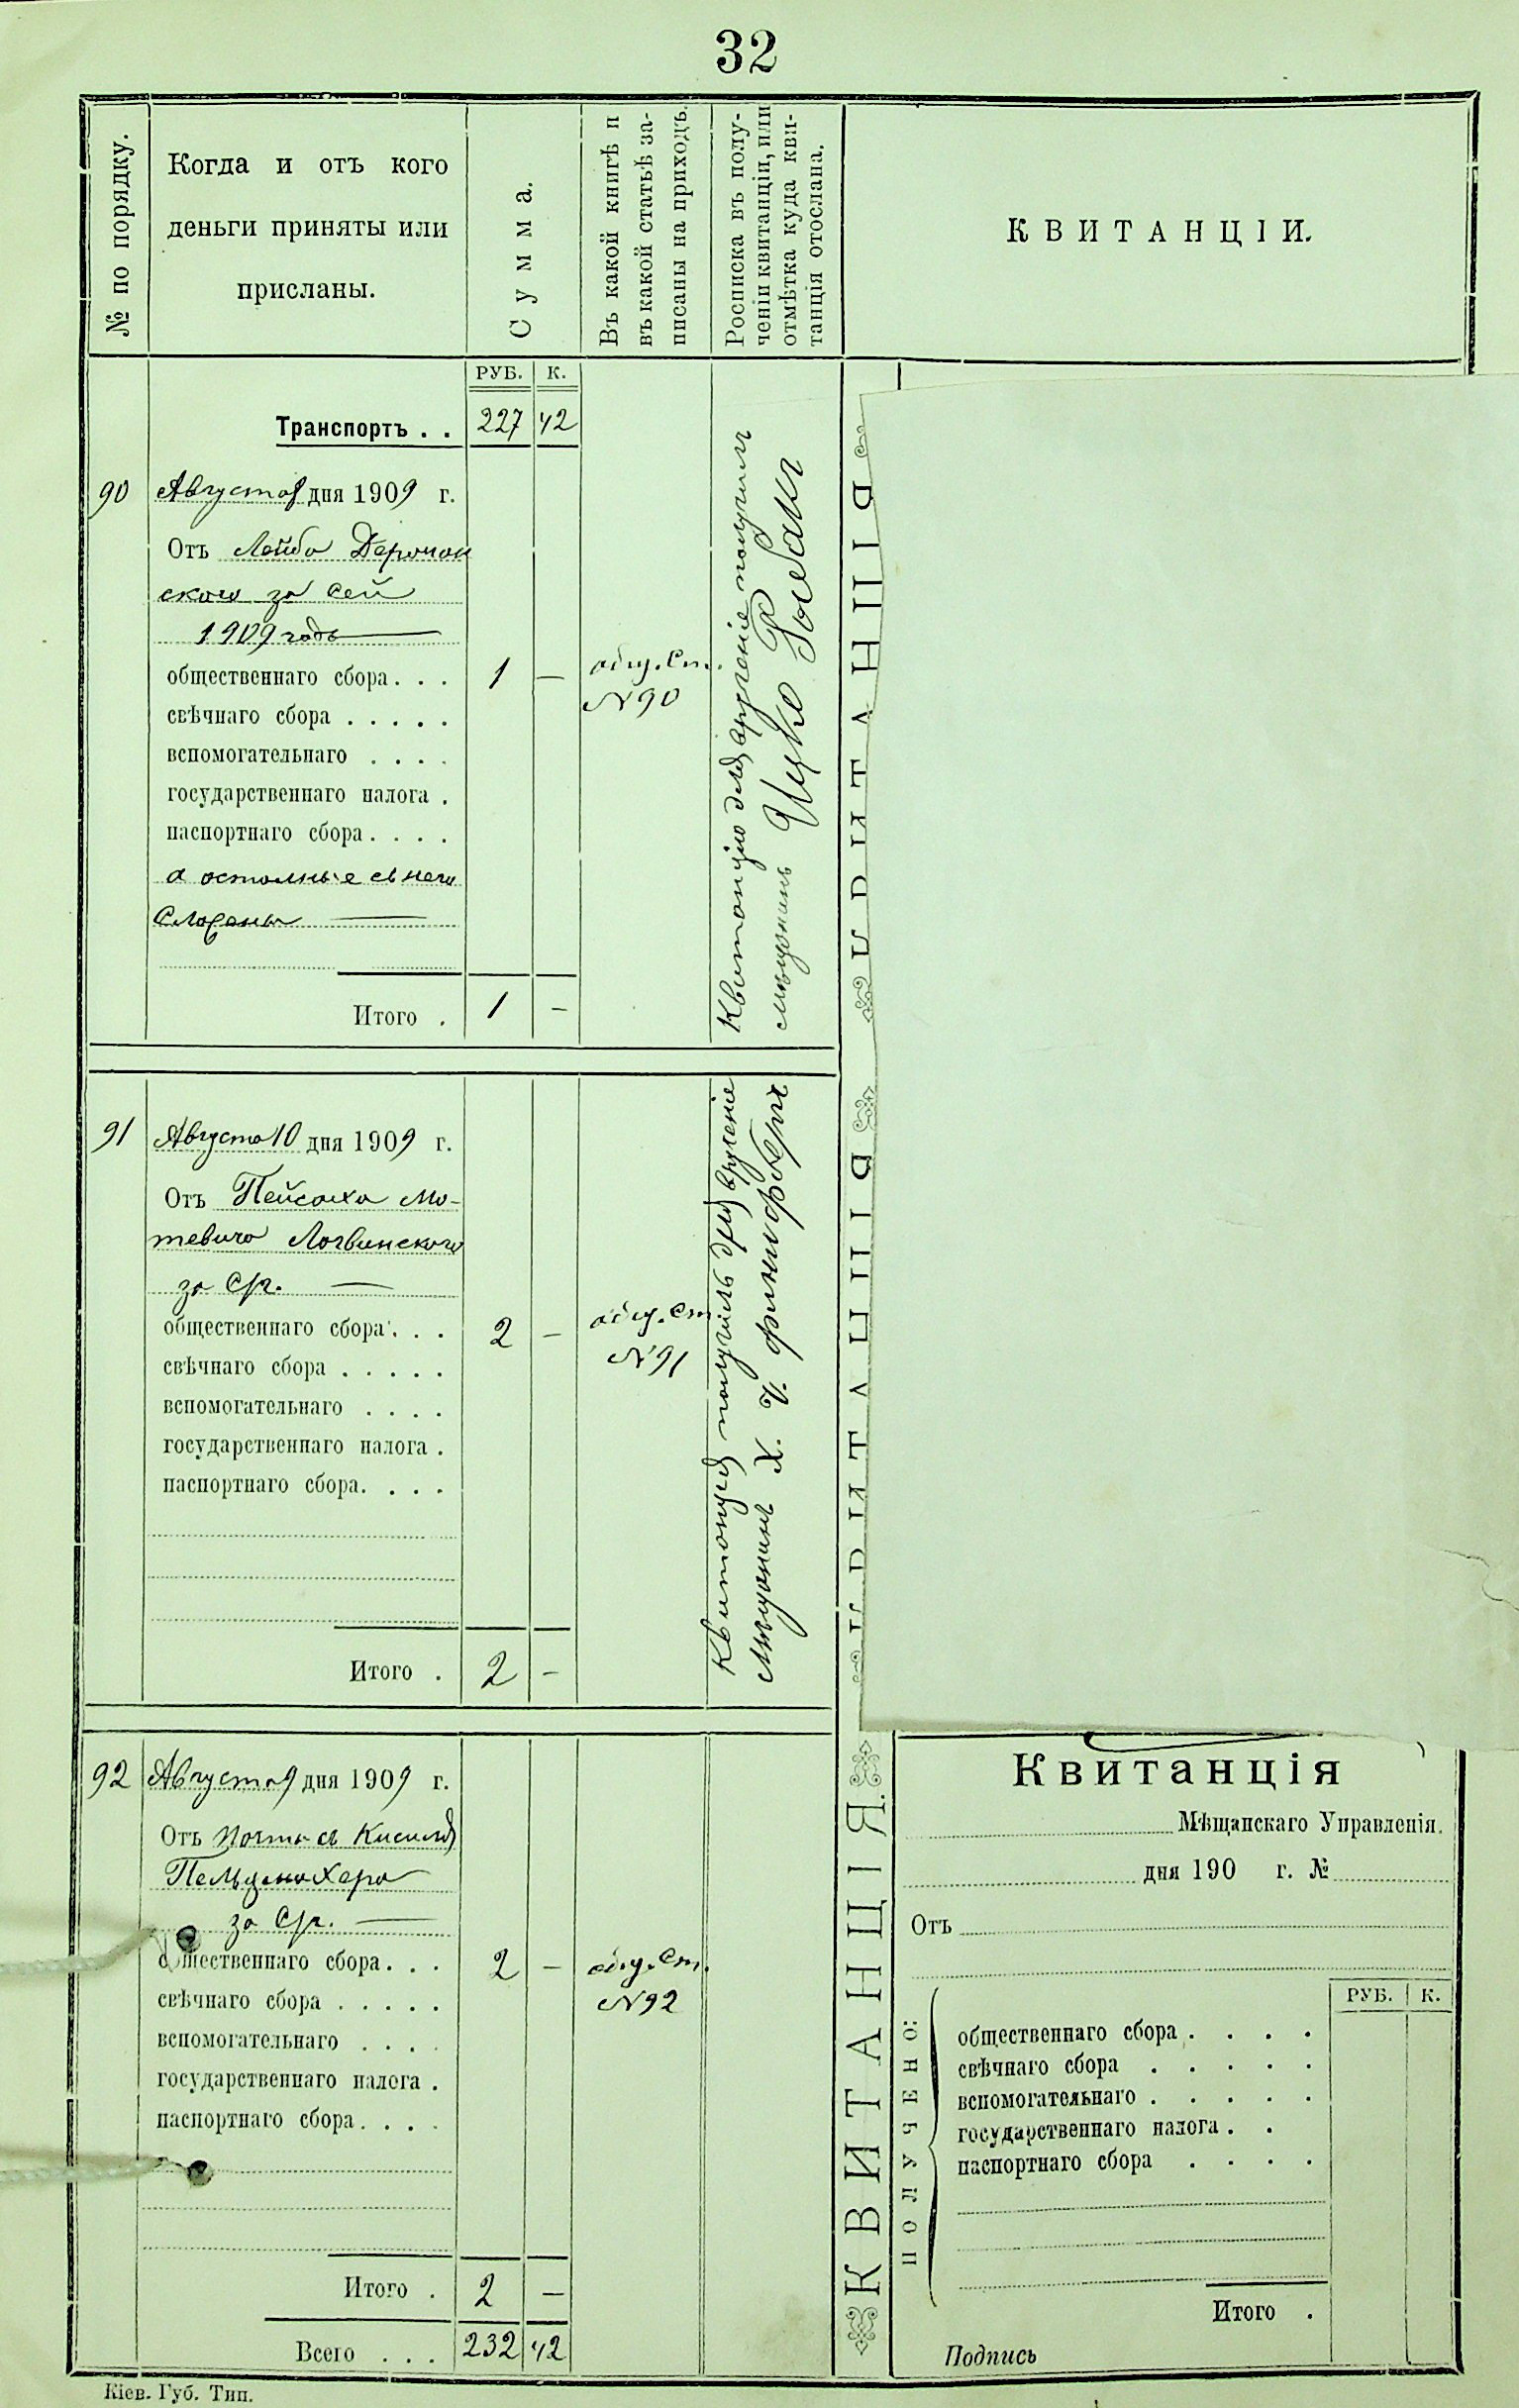 32
№ по порядку.
Когда и отъ кого
деньги приняты или
присланы.
Сумма.
Въ какой книгѣ и
въ какой статьѣ за-
писаны на приходъ.
Росписка въ полу-
ченіи квитанціи, или
отмѣтка куда кви-
танція отослана.
КВИТАНЦІИ.
РУБ. К.
Транспортъ . . 227 42
90 Августа 8 дня 1909 г.
Отъ Лейба
скаго за сей
1909 годъ
общественнаго сбора . . . 1 — общ. Ст.
N 90
свѣчнаго сбора . . . . .
вспомогательнаго . . . .
государственнаго налога .
паспортнаго сбора . . . .
а остальные съ него
Сложены
Итого . 1 —
Квитанцію для врученія получилъ
мѣщанинъ Ицко
91 Августа 10 дня 1909 г.
Отъ Пейсаха Мо-
тевича Логвинскаго
за Сг.
общественнаго сбора . . . 2 — общ. Ст.
N 91
свѣчнаго сбора . . . . .
вспомогательнаго . . . .
государственнаго налога .
паспортнаго сбора. . . .
Итого . 2 —
Квитанцію получилъ для врученія
Мѣщанинъ Х. И. Финкфбергъ
92 Августа 9 дня 1909 г.
Отъ почты съ
за Сг.
общественнаго сбора . . . 2 — общ. Ст.
N 92
свѣчнаго сбора . . . . .
вспомогательнаго . . . .
государственнаго налога .
паспортнаго сбора . . . .
Итого . 2 —
Всего . . . 232 42
Кіев. Губ. Тип.
КВИТАНЦІЯ
КВИТАНЦІЯ
КВИТАНЦІЯ.
Квитанція
Мѣщанскаго Управленія.
дня 190 г. №
Отъ
РУБ. К.
ПОЛУЧЕНО:
общественнаго сбора . . . .
свѣчнаго сбора . . . . .
вспомогательнаго . . . . .
государственнаго налога . .
паспортнаго сбора . . . .
Итого .
Подпись